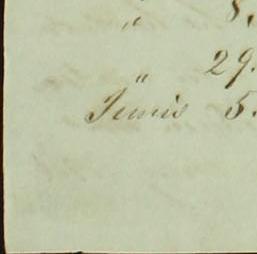 " 8.
" 29.
Junis 5.